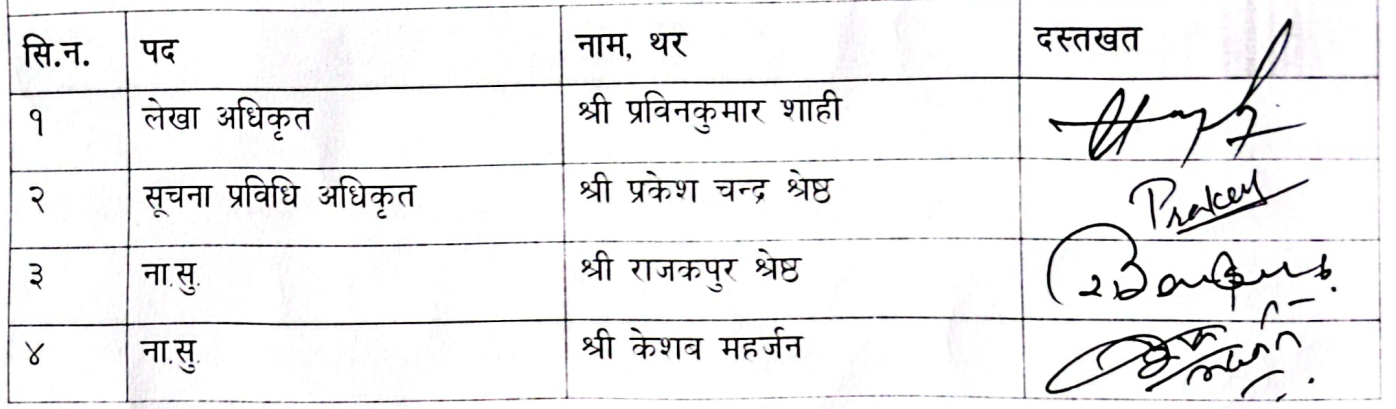 सि.न. पद नाम, थर दस्तखत
१ लेखा अधिकृत श्री प्रविनकुमार शाही
२ सूचना प्रविधि अधिकृत श्री प्रकेश चन्द्र श्रेष्ठ
३ ना.सु. श्री राजकपुर श्रेष्ठ
४ ना.सु. श्री केशब महर्जन